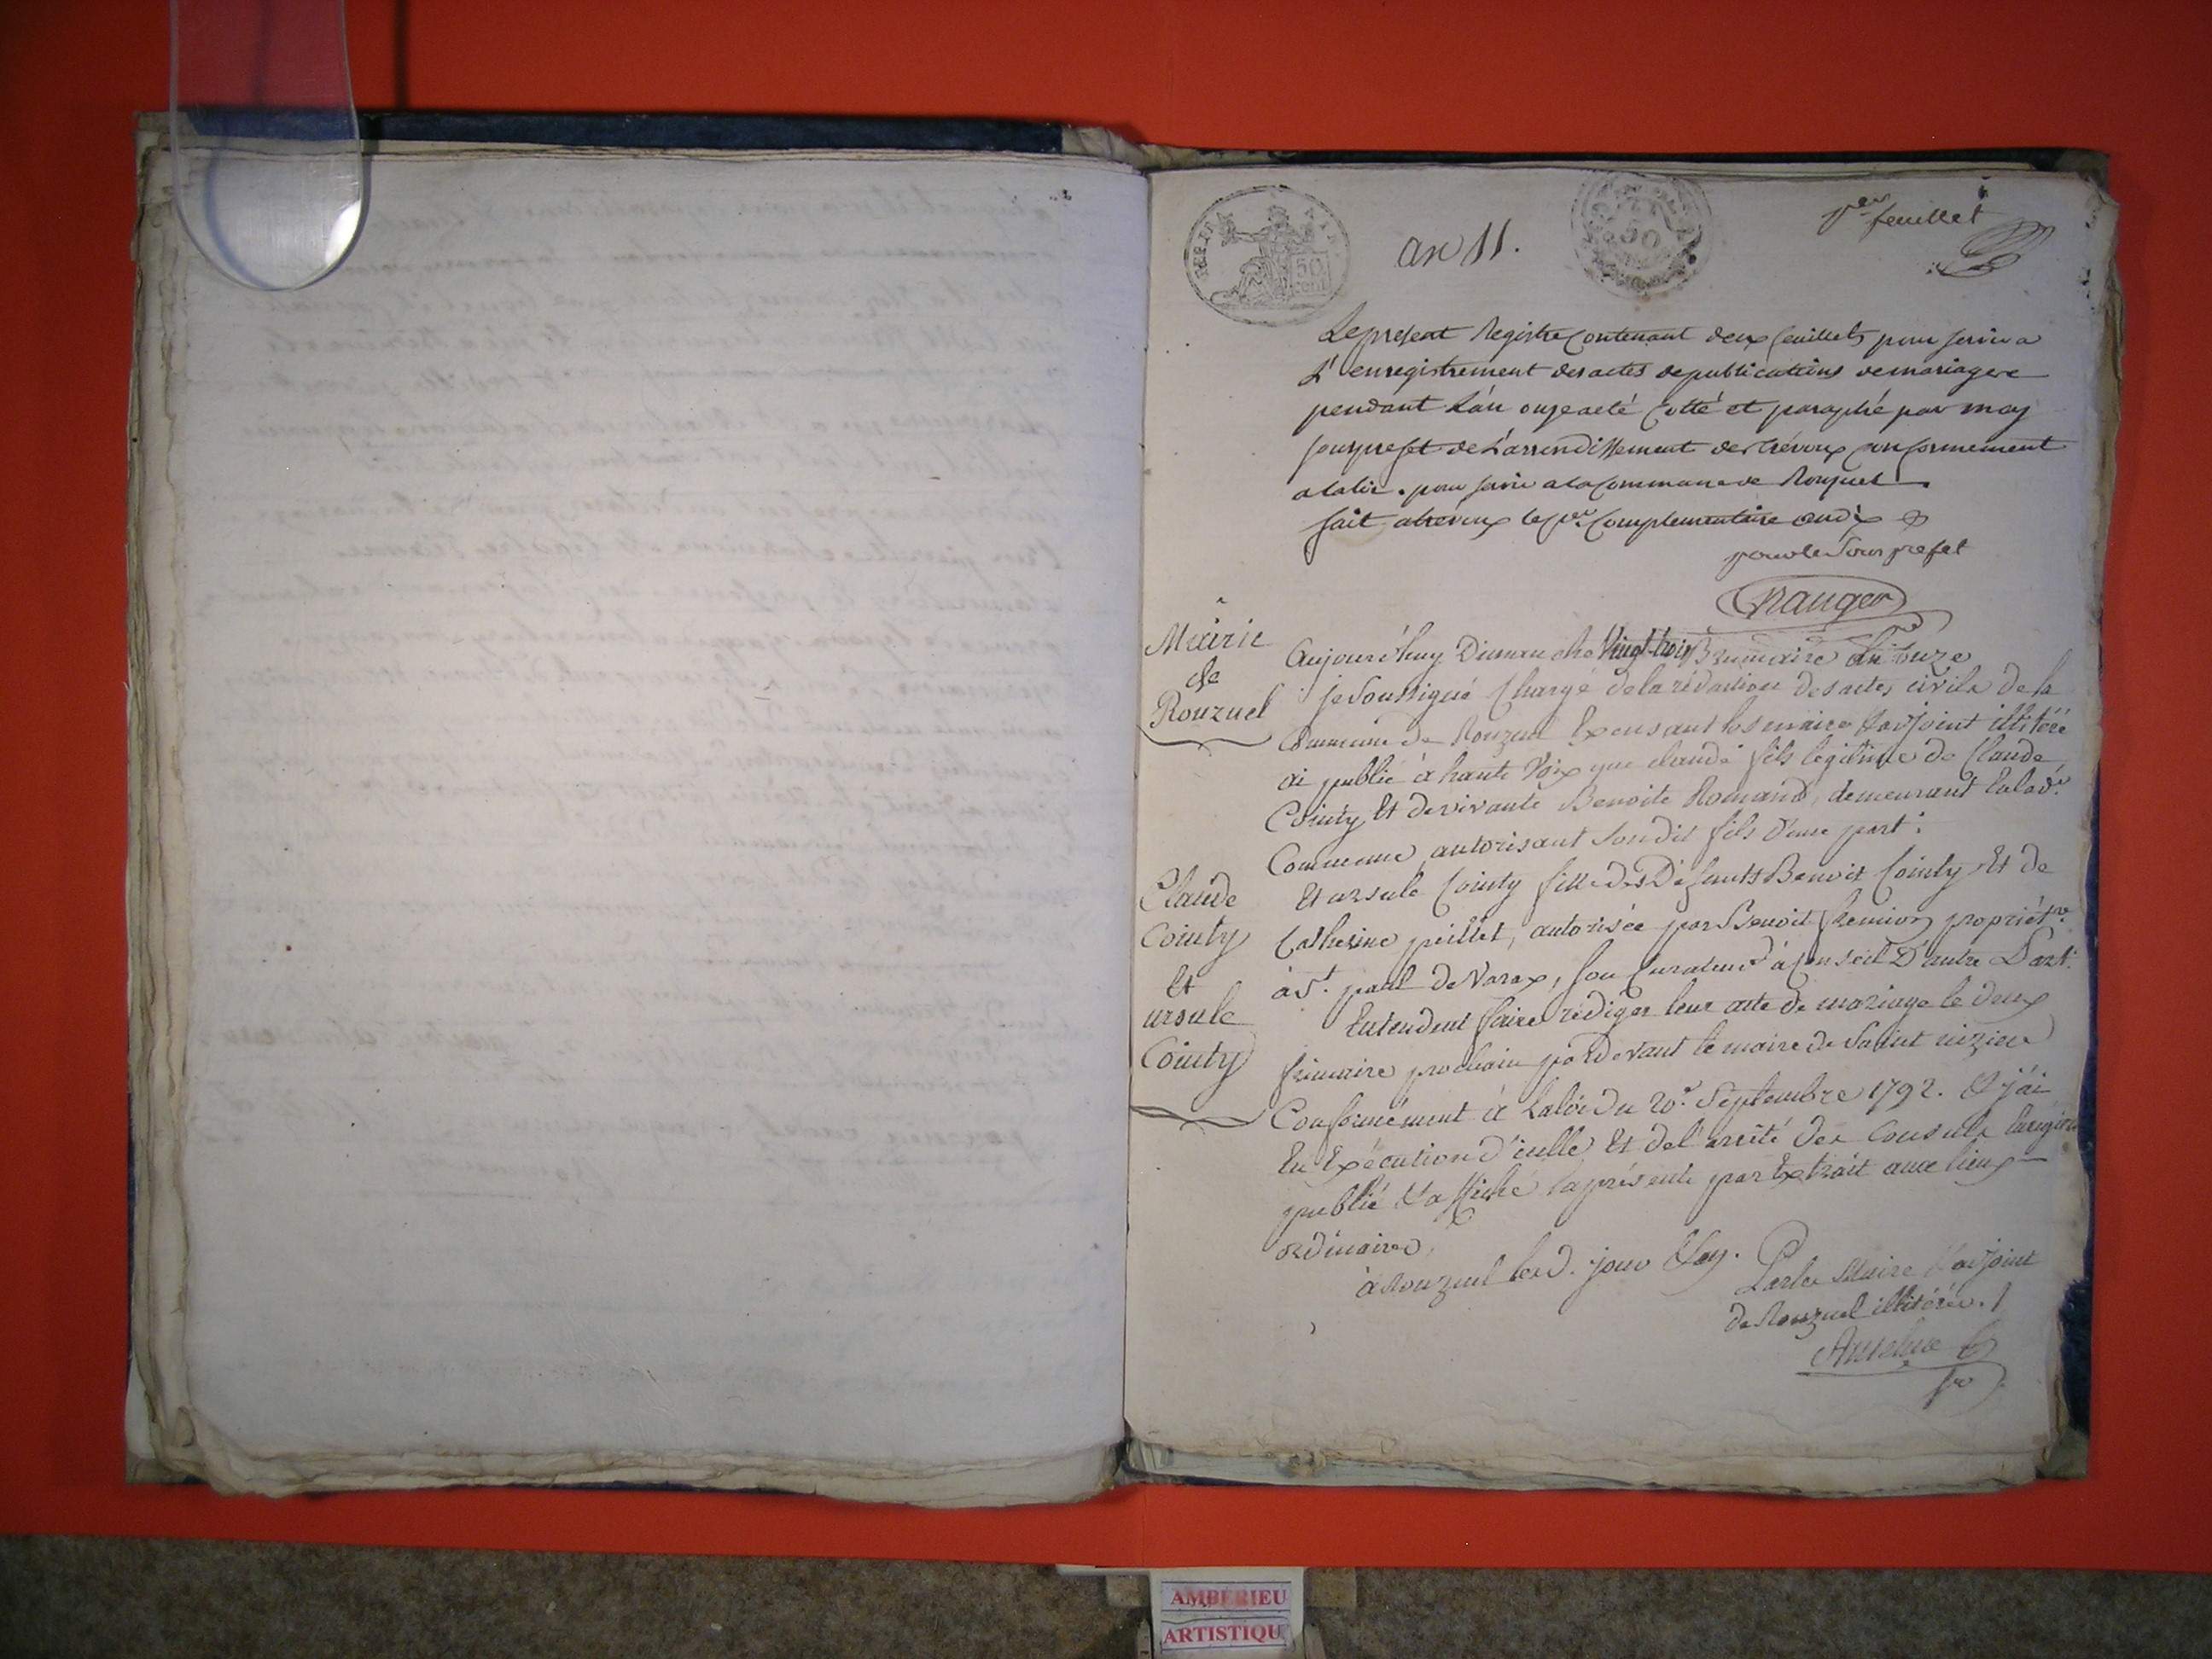 an 11.
50
50 cent
1er feuillet
Le present Registre Contenant deux feuillets pour servir a
L'enregistrement des actes de publications de mariage
pendant L'an onze a eté Cotté et paraphé par moy
sousprefet de L'arrondissement de trévoux Conformement
a la loi. pour servir a la Commune de Ronzuel
fait a trévoux le 1er Complementaire an dix
pour le Sous prefet
Mairie
de
Ronzuel
Aujourd'huy Dimanche Vingt-trois Brumaire An onze
je Soussigné Chargé de la rédaction des actes civils de la
Commune de Ronzuel Exposant les maire & adjoint illitéré
ai publié à haute Voix que claude fils légitime de Claude
Cointy Et de vivante Benoite Romand, demeurant En la de.
Commune, autorisant Son dit fils D'une part:
Claude
Cointy
Et
ursule
Cointy
Et ursule Cointy fille des Défunts Benoit Cointy Et de
Catherine peillet, autorisée par Benoit propriétre
à St. paul de Varax, Son Curateur à Conseil D'autre Part.
Entendent faire rédiger leur acte de mariage le deux
frimaire prochain par Devant le maire de Saint nizier
Conformément à La loi du 20e. Septembre 1792. & j'ai
En Exécution d'icelle Et de l'arrêté des Consuls
publié & affiché la présente par Extrait aux lieux
ordinaires,
à Ronzuel les d. jour & an.
Par les Maire & adjoint
de Ronzuel illitérés.
AMBERIEU
ARTISTIQU